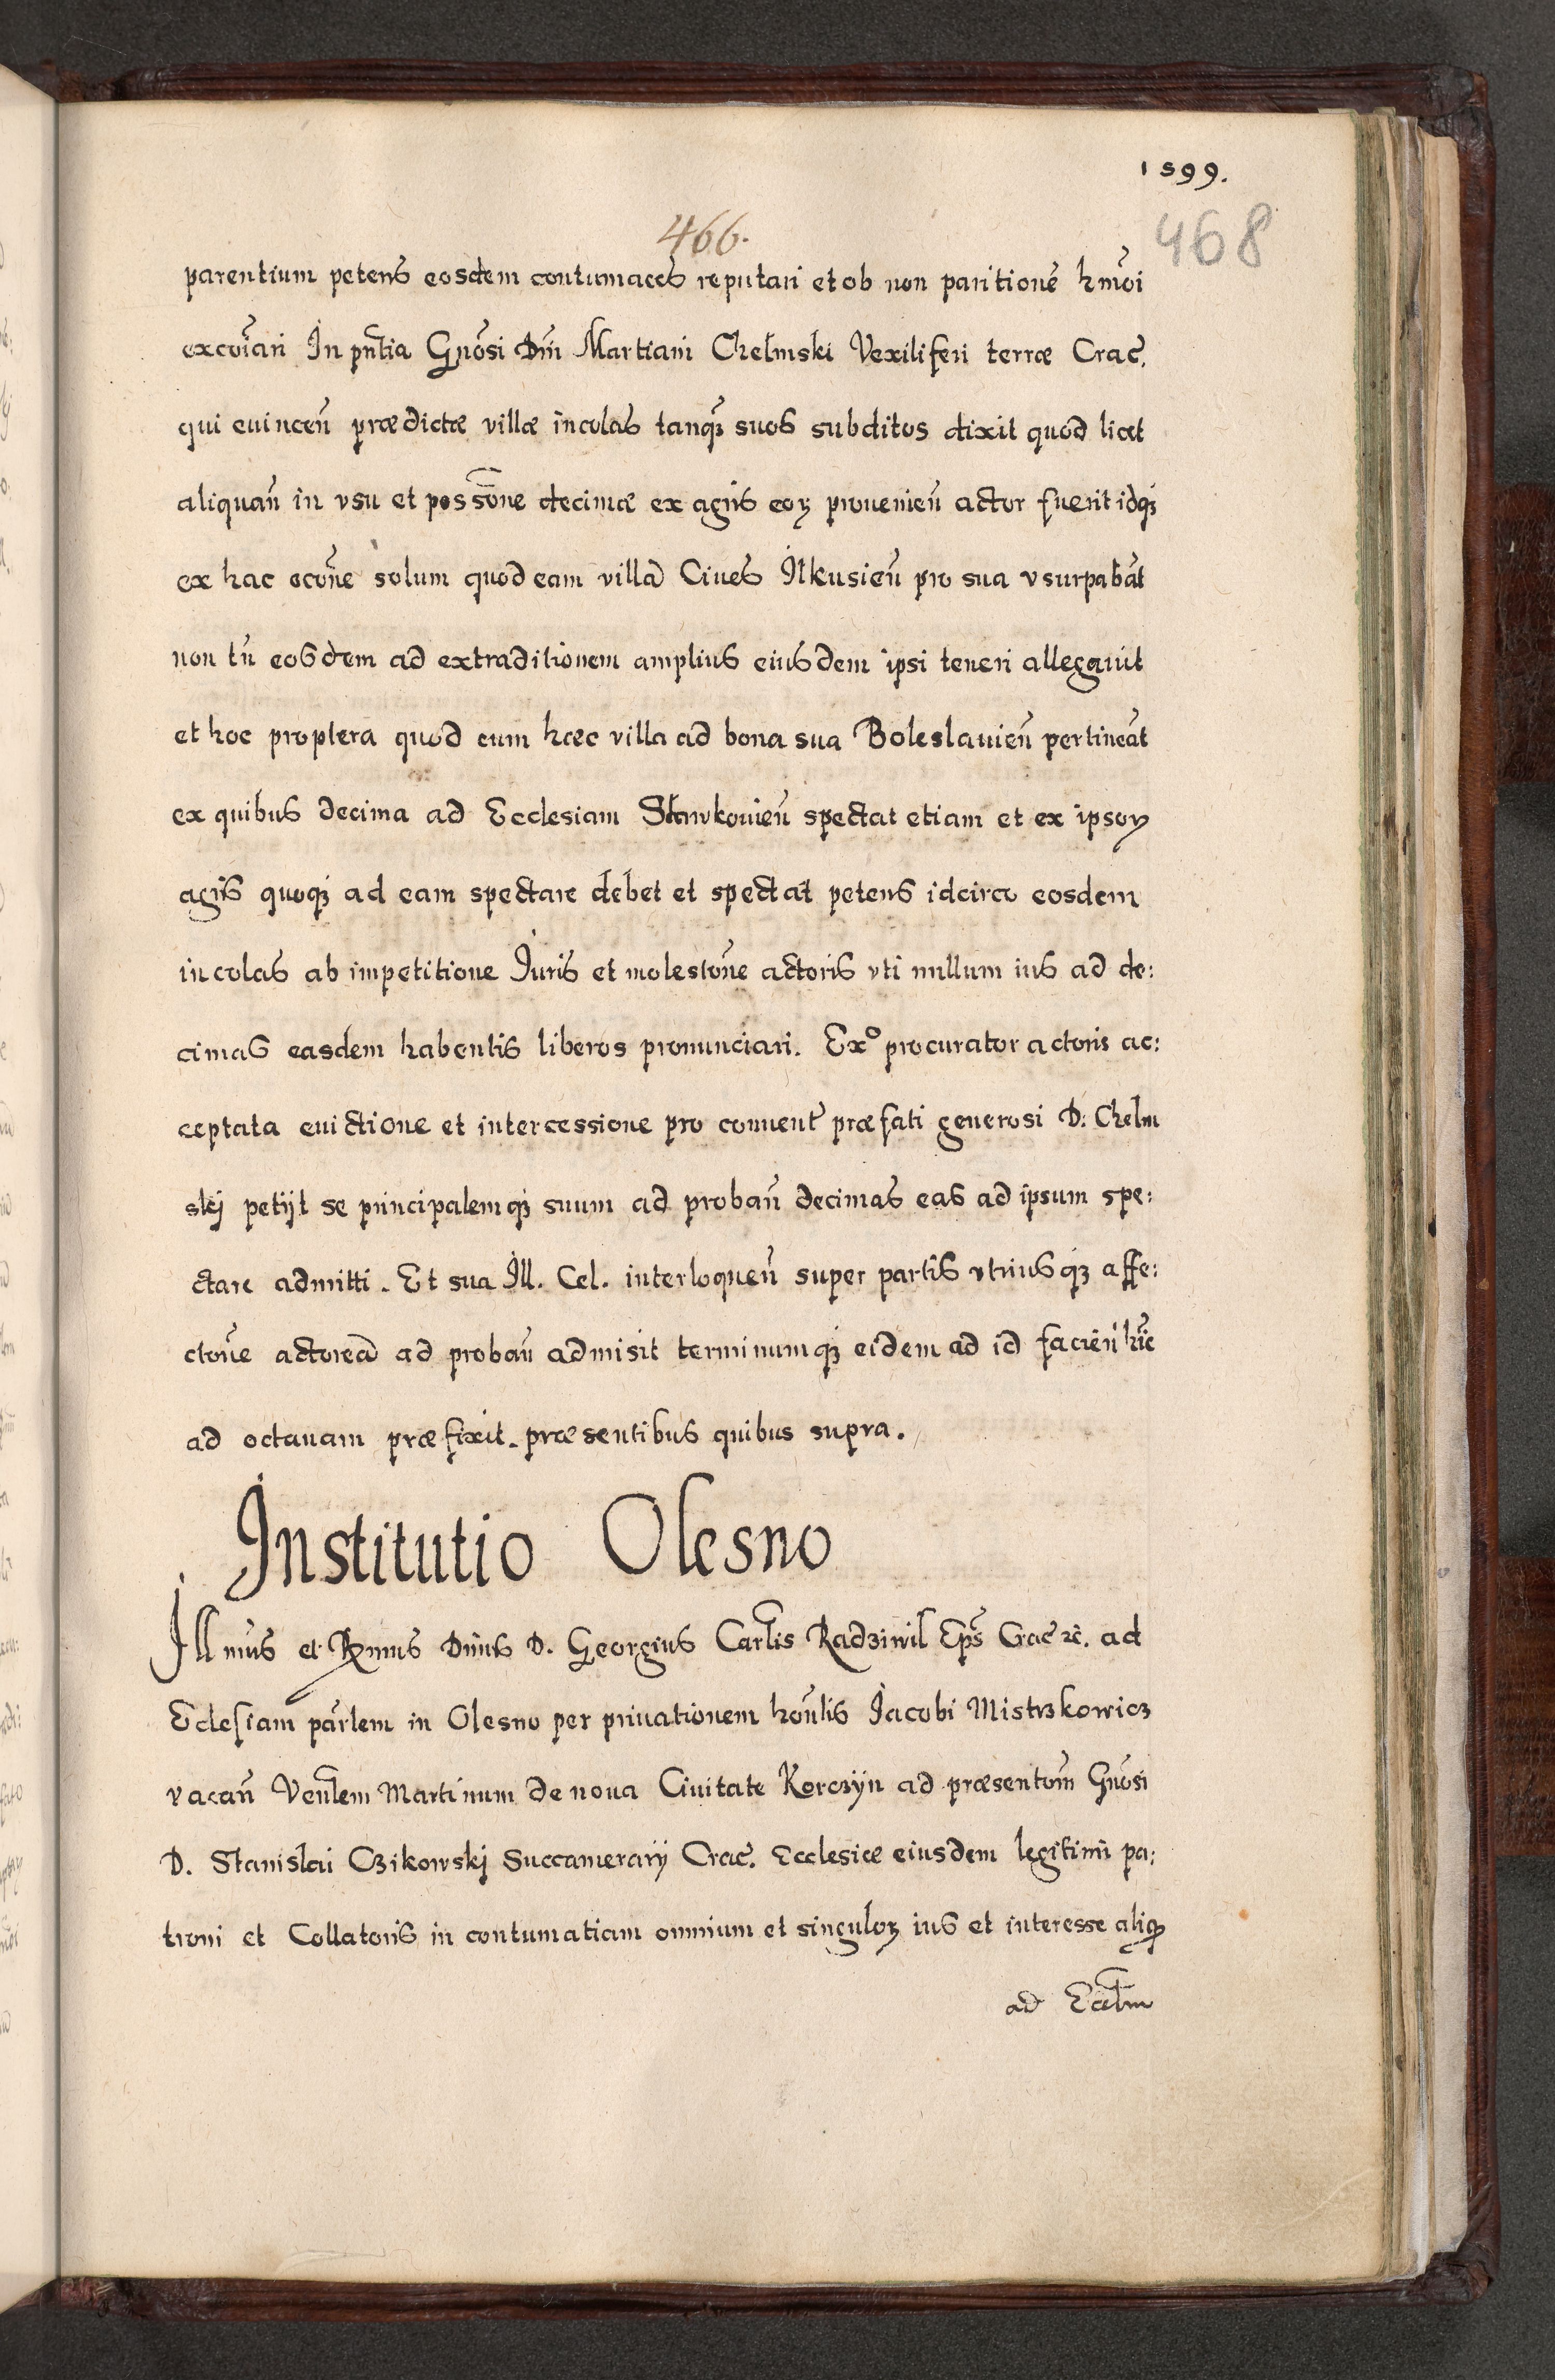 1599.
468
466.
parentium petens eosdem contumaces reputari et ob non paritionē hmōi
excōīari In pn̄tia Gnōsi Dnī Martiani Chelmski Vexiliferi terræ Crac̄.
qui euincen̄ prædictæ villæ incolas tanqꝫ suos subditos dixit quod licet
aliquan̄ in vsu et possōne decimæ ex agris eoꝝ prouenien̄ actor fuerit idqꝫ
ex hac ōcōne solum quod eam villā Ciues Ilkusien̄ pro sua vsurpabāt
non tn̄ eosdem ad extraditionem amplius eiusdem ipsi teneri allegauit
et hoc proptera quod cum hæc villa ad bona sua Boleslauien̄ pertineāt
ex quibus decima ad Ecclesiam Sławkouien̄ spectat etiam et ex ipsoꝝ
agris quoqꝫ ad eam spectare debet et spectat petens idcirco eosdem
incolas ab impetitione Iuris et molestōne actoris vti nullum ius ad de:
cimas easdem habentis liberos pronunciari. Exº procurator actoris ac:
ceptata euictione et intercessione pro conuent̄ præfati generosi D: Chelm
skj petijt se principalemqꝫ suum ad proban̄ decimas eas ad ipsum spe:
ctare admitti. Et sua Ill. Cel. interloquen̄ super partis vtriusqꝫ affe:
ctōne actoreā ad proban̄ admisit terminumqꝫ eidem ad id facien̄ hīc
ad octauam præfixit. præsentibus quibus supra.
Institutio Olesno
Illmūs et Rmus Dnūs D. Georgius Carlīs Radziwil Ep̄s Crac̄ ꝛc̄. ad
Eclesiam parlēm in Olesno per priuationem honl̄is Jacobi Mistrzkowicz
vacan̄ Venl̄em Martinum de noua Ciuitate Korczyn ad præsentōm Gnōsi
D. Stanislai Czikowskj Succamerarij Crac̄. Ecclesiæ eiusdem legitimi pa:
troni et Collatoris in contumatiam omnium et singuloꝝ ius et interesse aliqꝫ
ad Eccl̄m